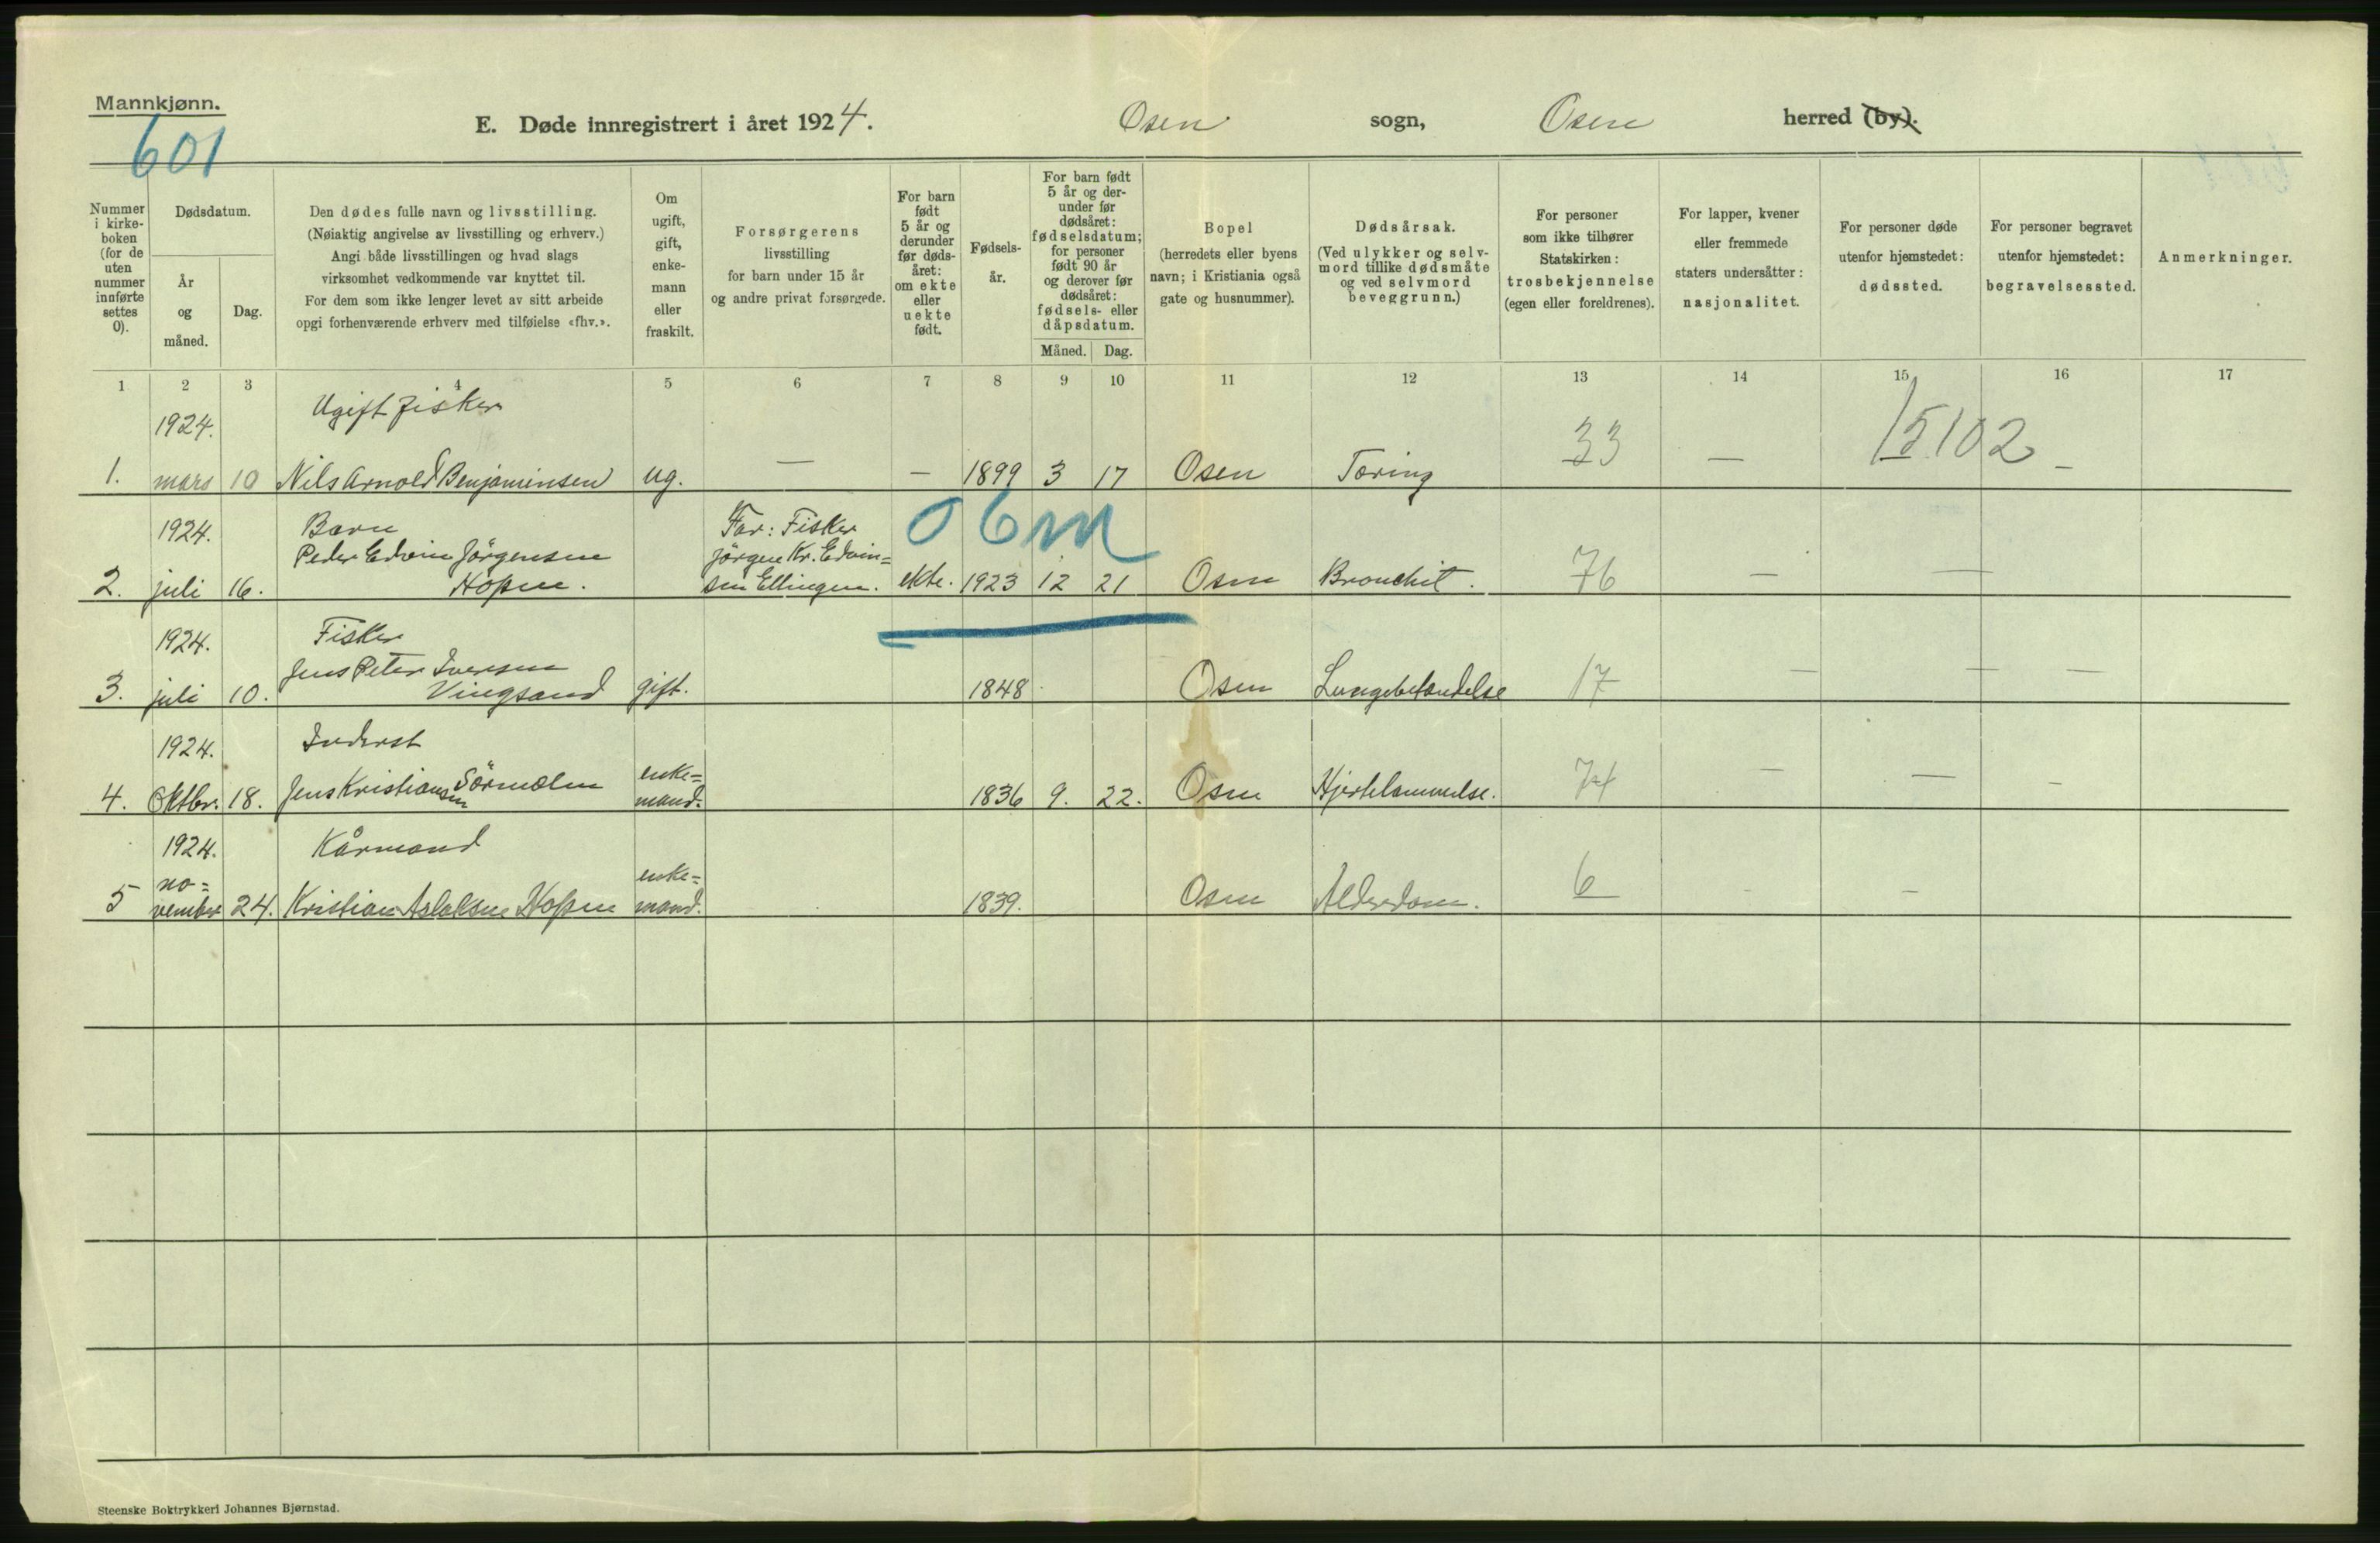 Mannkjønn.
601
E. Døde innregistrert i året 1924.
Osen sogn, Osen herred (by).
Nummer i kirke-boken (for de uten nummer innførte settes 0).
Dødsdatum.
År og måned.
Dag.
Den dødes fulle navn og livsstilling.
(Nøiaktig angivelse av livsstilling og erhverv.)
Angi både livsstillingen og hvad slags
virksomhet vedkommende var knyttet til.
For dem som ikke lenger levet av sitt arbeide
opgi forhenværende erhverv med tilføielse «fhv.».
Om ugift, gift, enke-mann eller fraskilt.
Forsørgerens
livsstilling
for barn under 15 år
og andre privat forsørgede.
For barn født 5 år og derunder før døds-året: om ekte eller uekte født.
Fødsels-år.
For barn født 5 år og der-under før dødsåret: fødselsdatum; for personer født 90 år og derover før dødsåret: fødsels- eller dåpsdatum.
Måned. Dag.
Bopel
(herredets eller byens
navn; i Kristiania også
gate og husnummer).
Dødsårsak.
(Ved ulykker og selv-
mord tillike dødsmåte
og ved selvmord
beveggrunn.)
For personer
som ikke tilhører
Statskirken:
trosbekjennelse
(egen eller foreldrenes).
For lapper, kvener
eller fremmede
staters undersåtter:
nasjonalitet.
For personer døde
utenfor hjemstedet:
dødssted.
For personer begravet
utenfor hjemstedet:
begravelsessted.
Anmerkninger.
1 2 3 4 5 6 7 8 9 10 11 12 13 14 15 16 17
1924. Ugift fisker 15102
1. mars 10 Nils Arnold Benjaminsen ug. — — 1899 3 17 Osen Tæring 33 — —
1924. Barn Far: Fisker 06m
Peder Edvin Jörgensen Jörgen Kr. Edvin=
2. juli 16. Hopen. sen Ellingen. ekte. 1923 12 21 Osen Bronchit. 76 — —
1924. Fisker
Jens Peter Iversen
3. juli 10. Vingsand gift. 1848 Osen Lungebetændelse 17 — — —
1924. Inderst
enke=
4. Oktbr. 18. Jens Kristiansen Sörmelen mand. 1836 9. 22. Osen Hjertelammelse. 74 — — —
1924. Kårmand
no= enke=
5 vember 24. Kristian Aslaksen Hopen mand. 1839. Osen Alderdom. 6 - -
Steenske Boktrykkeri Johannes Bjørnstad.